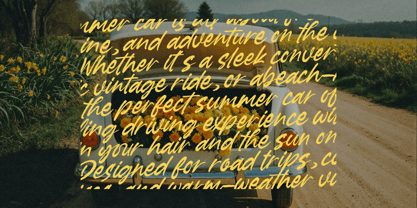 mmer car is all about
ine, and adventure on the
Whether it's a sleek conver
c vintage ride, or abeach-
the perfect summer car of
ing driving experience wi
n your hair and the sun on
Designed for road trips, co
and warm-weather